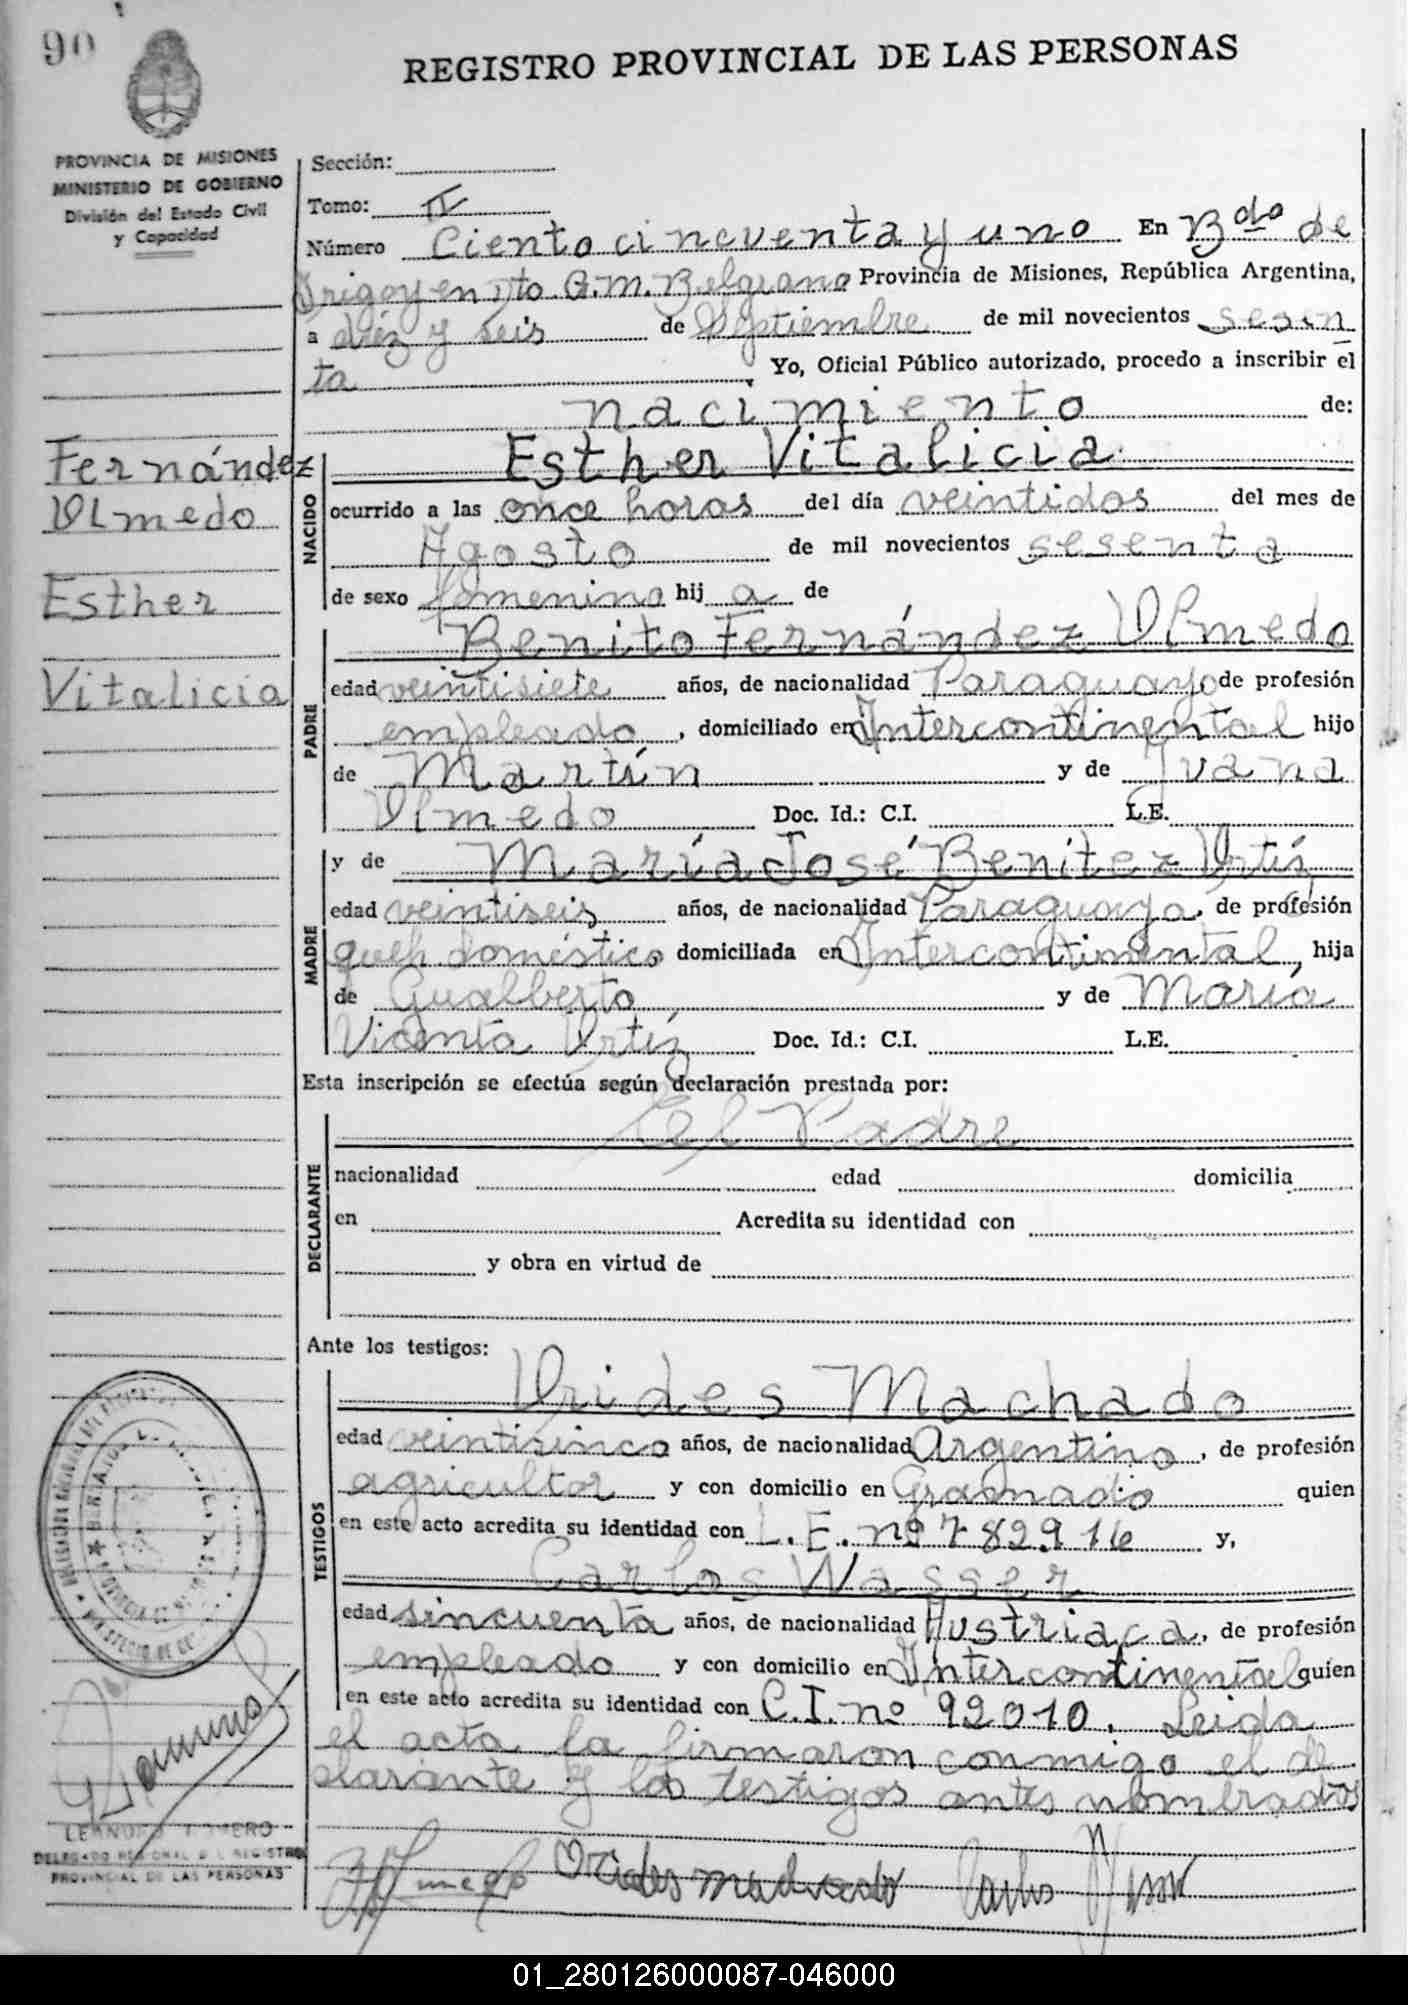 90
REGISTRO PROVINCIAL DE LAS PERSONAS
PROVINCIA DE MISIONES
MINISTERIO DE GOBIERNO
División del Estado Civil
y Capacidad
Fernández
Olmedo
Esther
Vitalicia
Sección:
Tomo: II
Número Ciento cincuenta y uno En Bdo de
Irigoyen Dto. G.M. Belgrano Provincia de Misiones, República Argentina,
a diez y seis de Septiembre de mil novecientos sesen
ta, Yo, Oficial Público autorizado, procedo a inscribir el
nacimiento de:
NACIDO
Esther Vitalicia
ocurrido a las once horas del día veintidos del mes de
Agosto de mil novecientos sesenta
de sexo femenino hij a de
PADRE
Benito Fernández Olmedo
edad veintisiete años, de nacionalidad Paraguayo de profesión
empleado, domiciliado en Intercontinental hijo
de Martín y de Juana
Olmedo Doc. Id.: C.I. L.E.
MADRE
y de María José Benítez Ortíz
edad veintiseis años, de nacionalidad Paraguaya, de profesión
queh doméstico domiciliada en Intercontinental, hija
de Gualberto y de María
Vicenta Ortíz Doc. Id.: C.I. L.E.
Esta inscripción se efectúa según declaración prestada por:
DECLARANTE
El Padre
nacionalidad edad domicilia
en Acredita su identidad con
y obra en virtud de
Ante los testigos:
TESTIGOS
Orides Machado
edad veintisinco años, de nacionalidad Argentino, de profesión
agricultor y con domicilio en Gramado quien
en este acto acredita su identidad con L.E. nº 782916 y,
Carlos Wasser
edad sincuenta años, de nacionalidad Austriaca, de profesión
empleado y con domicilio en Intercontinental quien
en este acto acredita su identidad con C.I. nº 92010. Leida
el acta la firmaron conmigo el de
clarante y los testigos antes nombrados
Orides machado Carlos Wasser
LEANDRO ROMERO
DELEGADO REGIONAL DEL REGISTRO
PROVINCIAL DE LAS PERSONAS
01_280126000087-046000